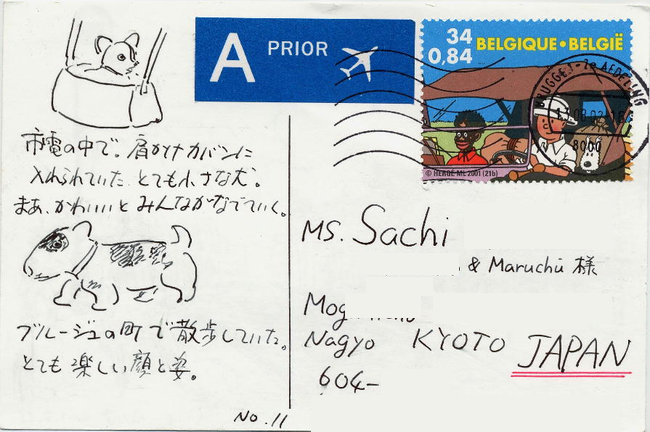 A PRIOR
34
0,84
BELGIQUE•BELGIË
© HERGÉ-ML 2001 (21b)
8000
市電の中で。肩かけカバンに
入れられていた とても小さな犬。
まあ、かわいいと みんながなでていく。
ブルージュの町で散歩していた。
とても楽しい顔と姿。
No.11
MS. Sachi
& Maruchū 様
Mog
Nagyo KYOTO JAPAN
604-